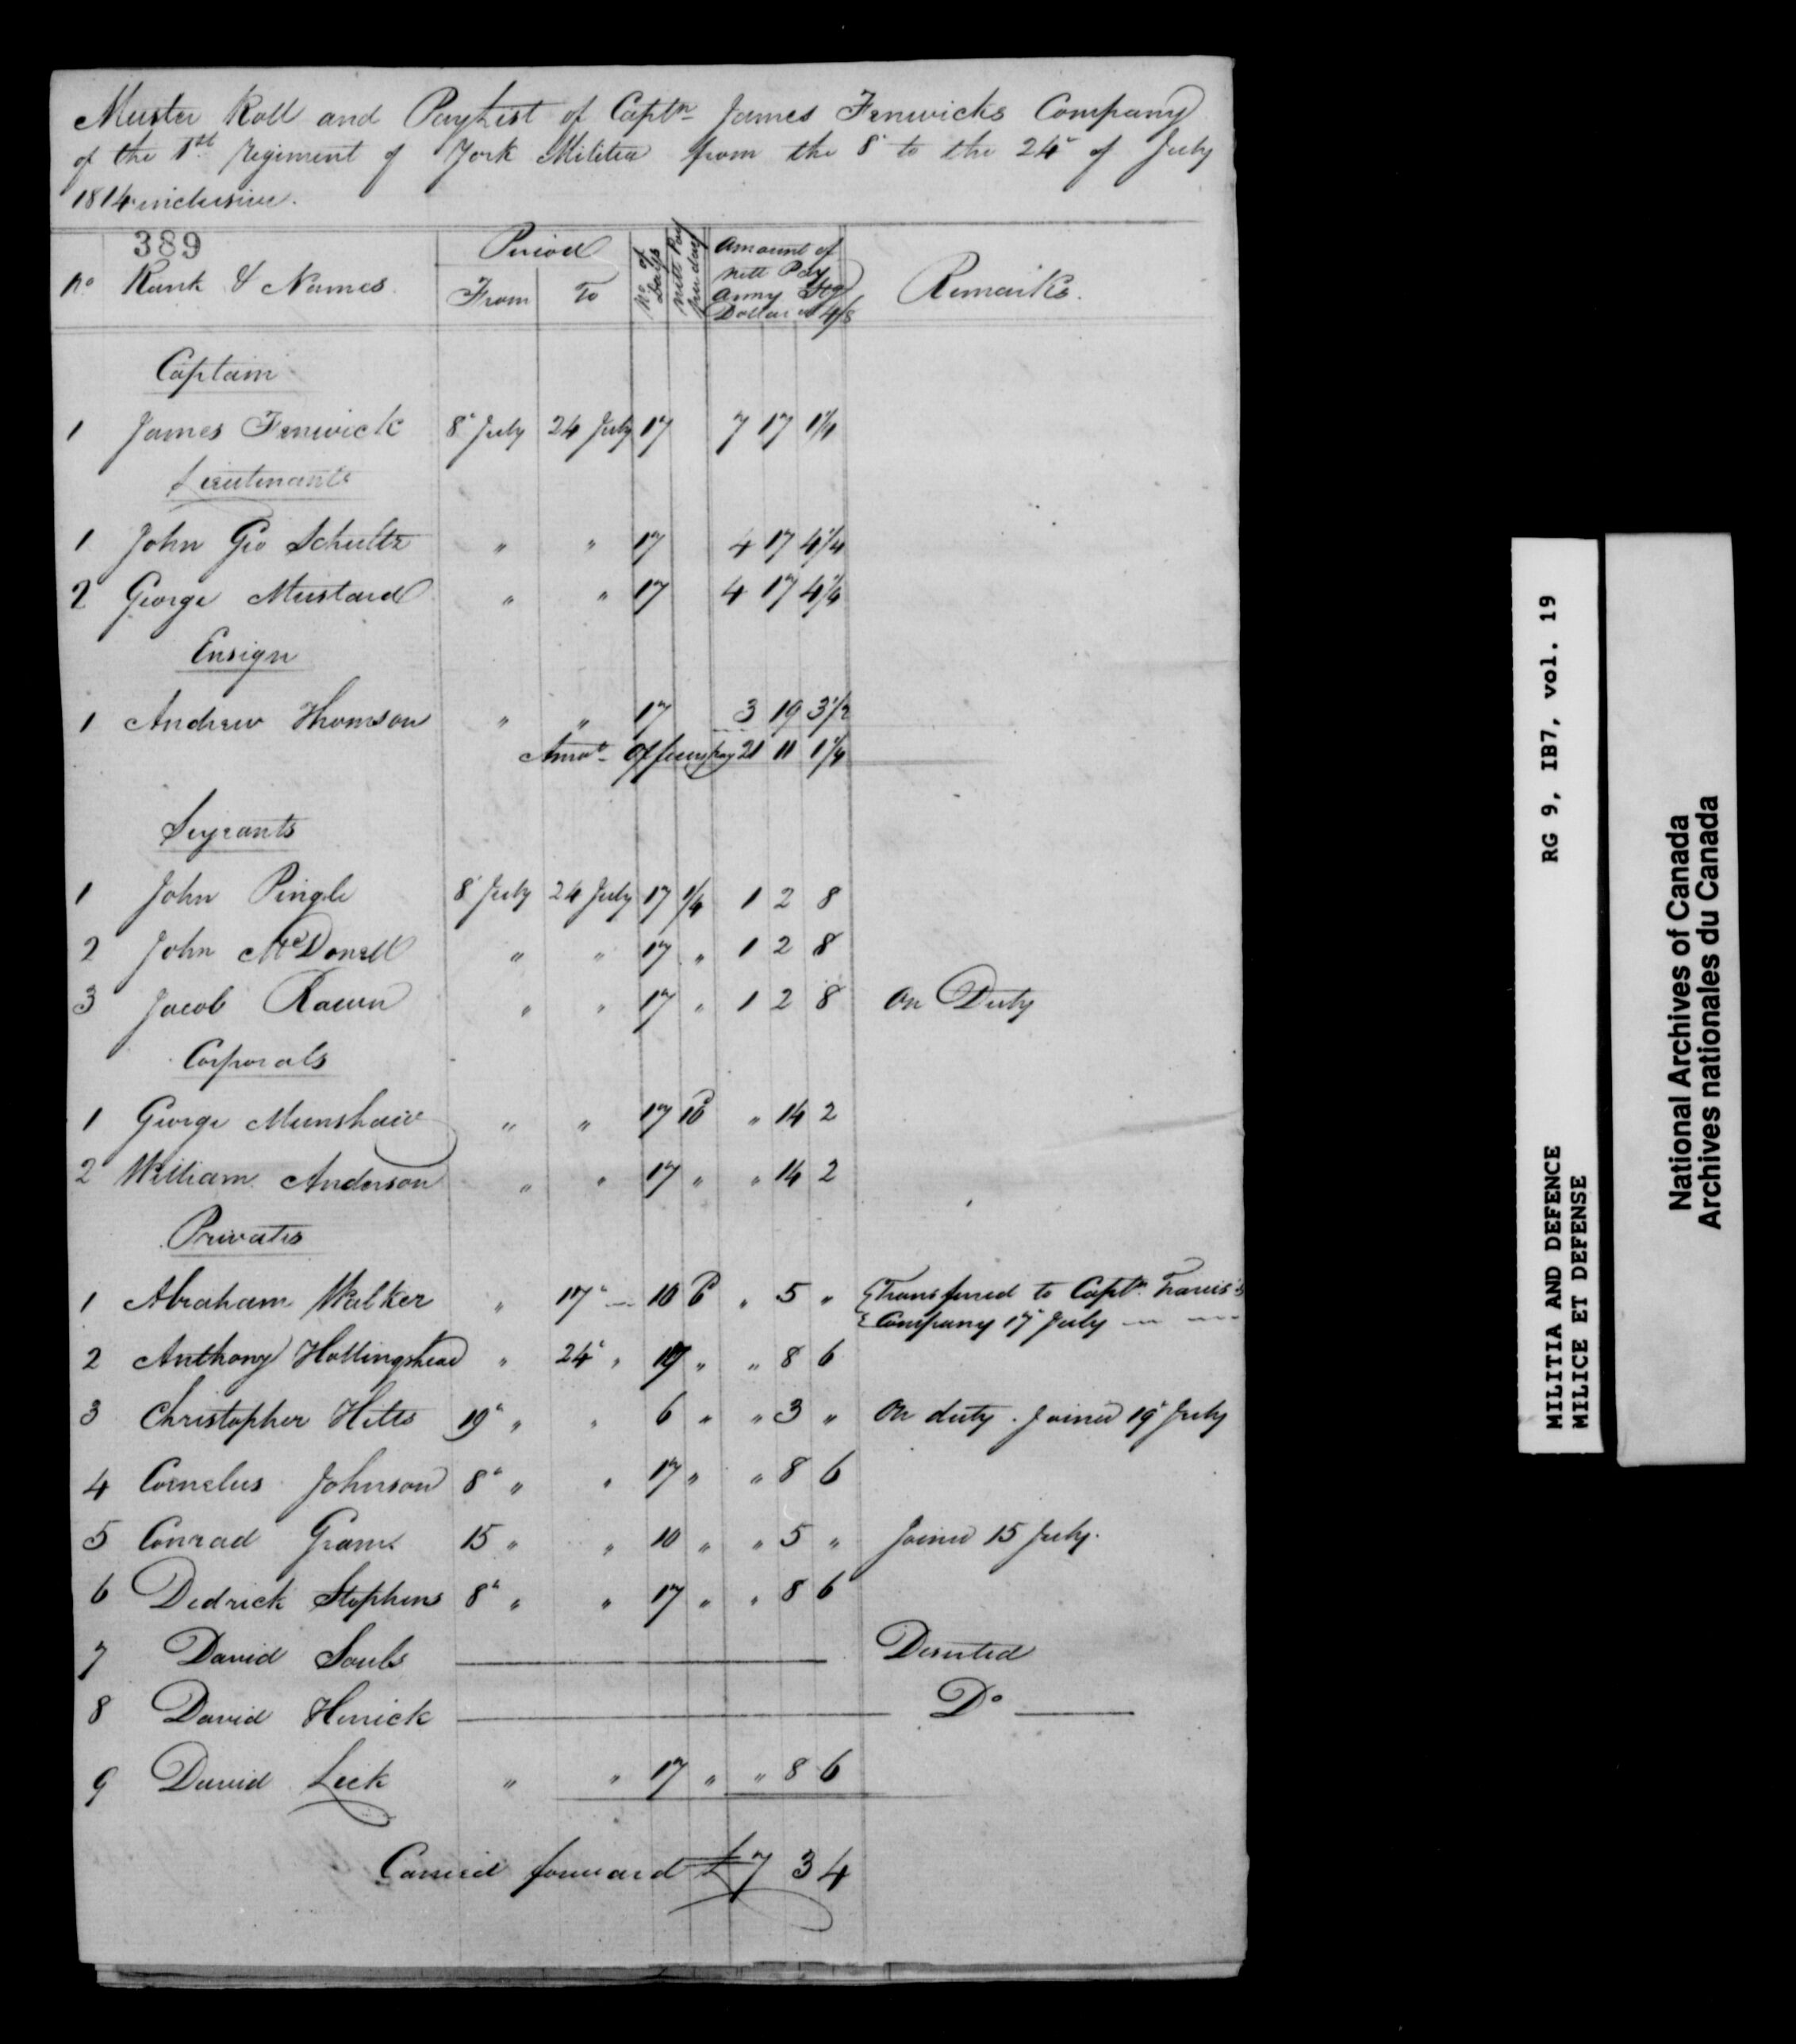 Muster Roll and Paylist of Captn James Fenwicks Company
of the 1st Regiment of York Militia from the 8th to the 24th of July
1814 inclusive.
389
No Rank & Names Period From To No of Days Nett Pay per day Amount of Nett Pay Army Stg Dollar at 4/8 Remarks.
Captain
1 James Fenwick 8th July 24 July 17 7 17 1¼
Lieutenants
1 John Geo Schultz " " 17 4 17 4¼
2 George Mustard " " 17 4 17 4¼
Ensign
1 Andrew Thomson " " 17 3 19 3½
Amot Officers pay 21 11 1¼
Serjeants
1 John Pingle 8th July 24 July 17 1/4 1 2 8
2 John McDonell " " 17 " 1 2 8
3 Jacob Rawn " " 17 " 1 2 8 On Duty
Corporals
1 George Munshaw " " 17 10 " 14 2
2 William Anderson " " 17 " " 14 2
Privates
1 Abraham Walker " 17th 10 6 " 5 " Transferred to Captn Travis's
Company 17th July
2 Anthony Hollingshead " 24th " 17 " " 8 6
3 Christopher Hilts 19th " " 6 " " 3 " On duty. Joined 19th July
4 Cornelus Johnson 8th " " 17 " " 8 6
5 Conrad Gram 15 " " 10 " " 5 " Joined 15 July.
6 Dedrick Stophens 8th " " 17 " " 8 6
7 David Souls Deserted
8 David Herrick Do
9 David Leek " " 17 " " 8 6
Carried forward £7 3 4
MILITIA AND DEFENCE RG 9, IB7, vol. 19
MILICE ET DEFENSE
National Archives of Canada
Archives nationales du Canada